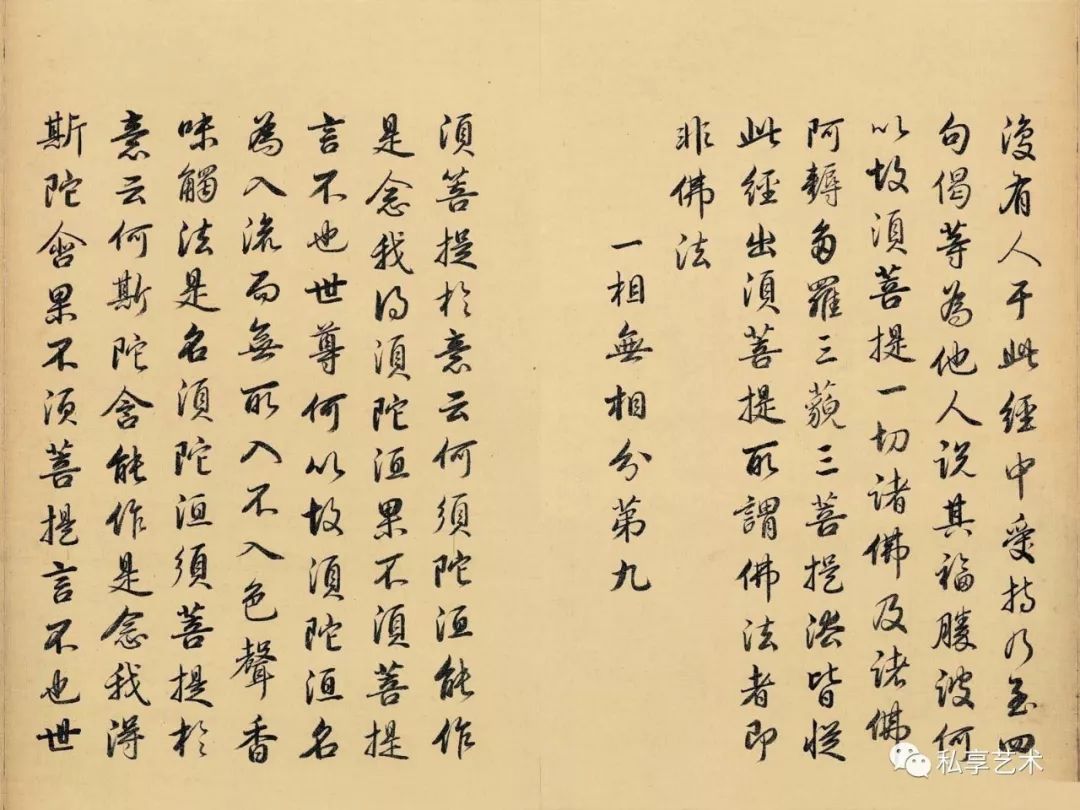 復有人于此經中受持乃至四
句偈等為他人説其福勝彼何
以故須菩提一切諸佛及諸佛
阿耨多羅三藐三菩提法皆從
此經出須菩提所謂佛法者即
非佛法
一相無相分第九
須菩提於意云何須陀洹能作
是念我得須陀洹果不須菩提
言不也世尊何以故須陀洹名
為入流而無所入不入色聲香
味觸法是名須陀洹須菩提於
意云何斯陀含能作是念我得
斯陀含果不須菩提言不也世
私享艺术